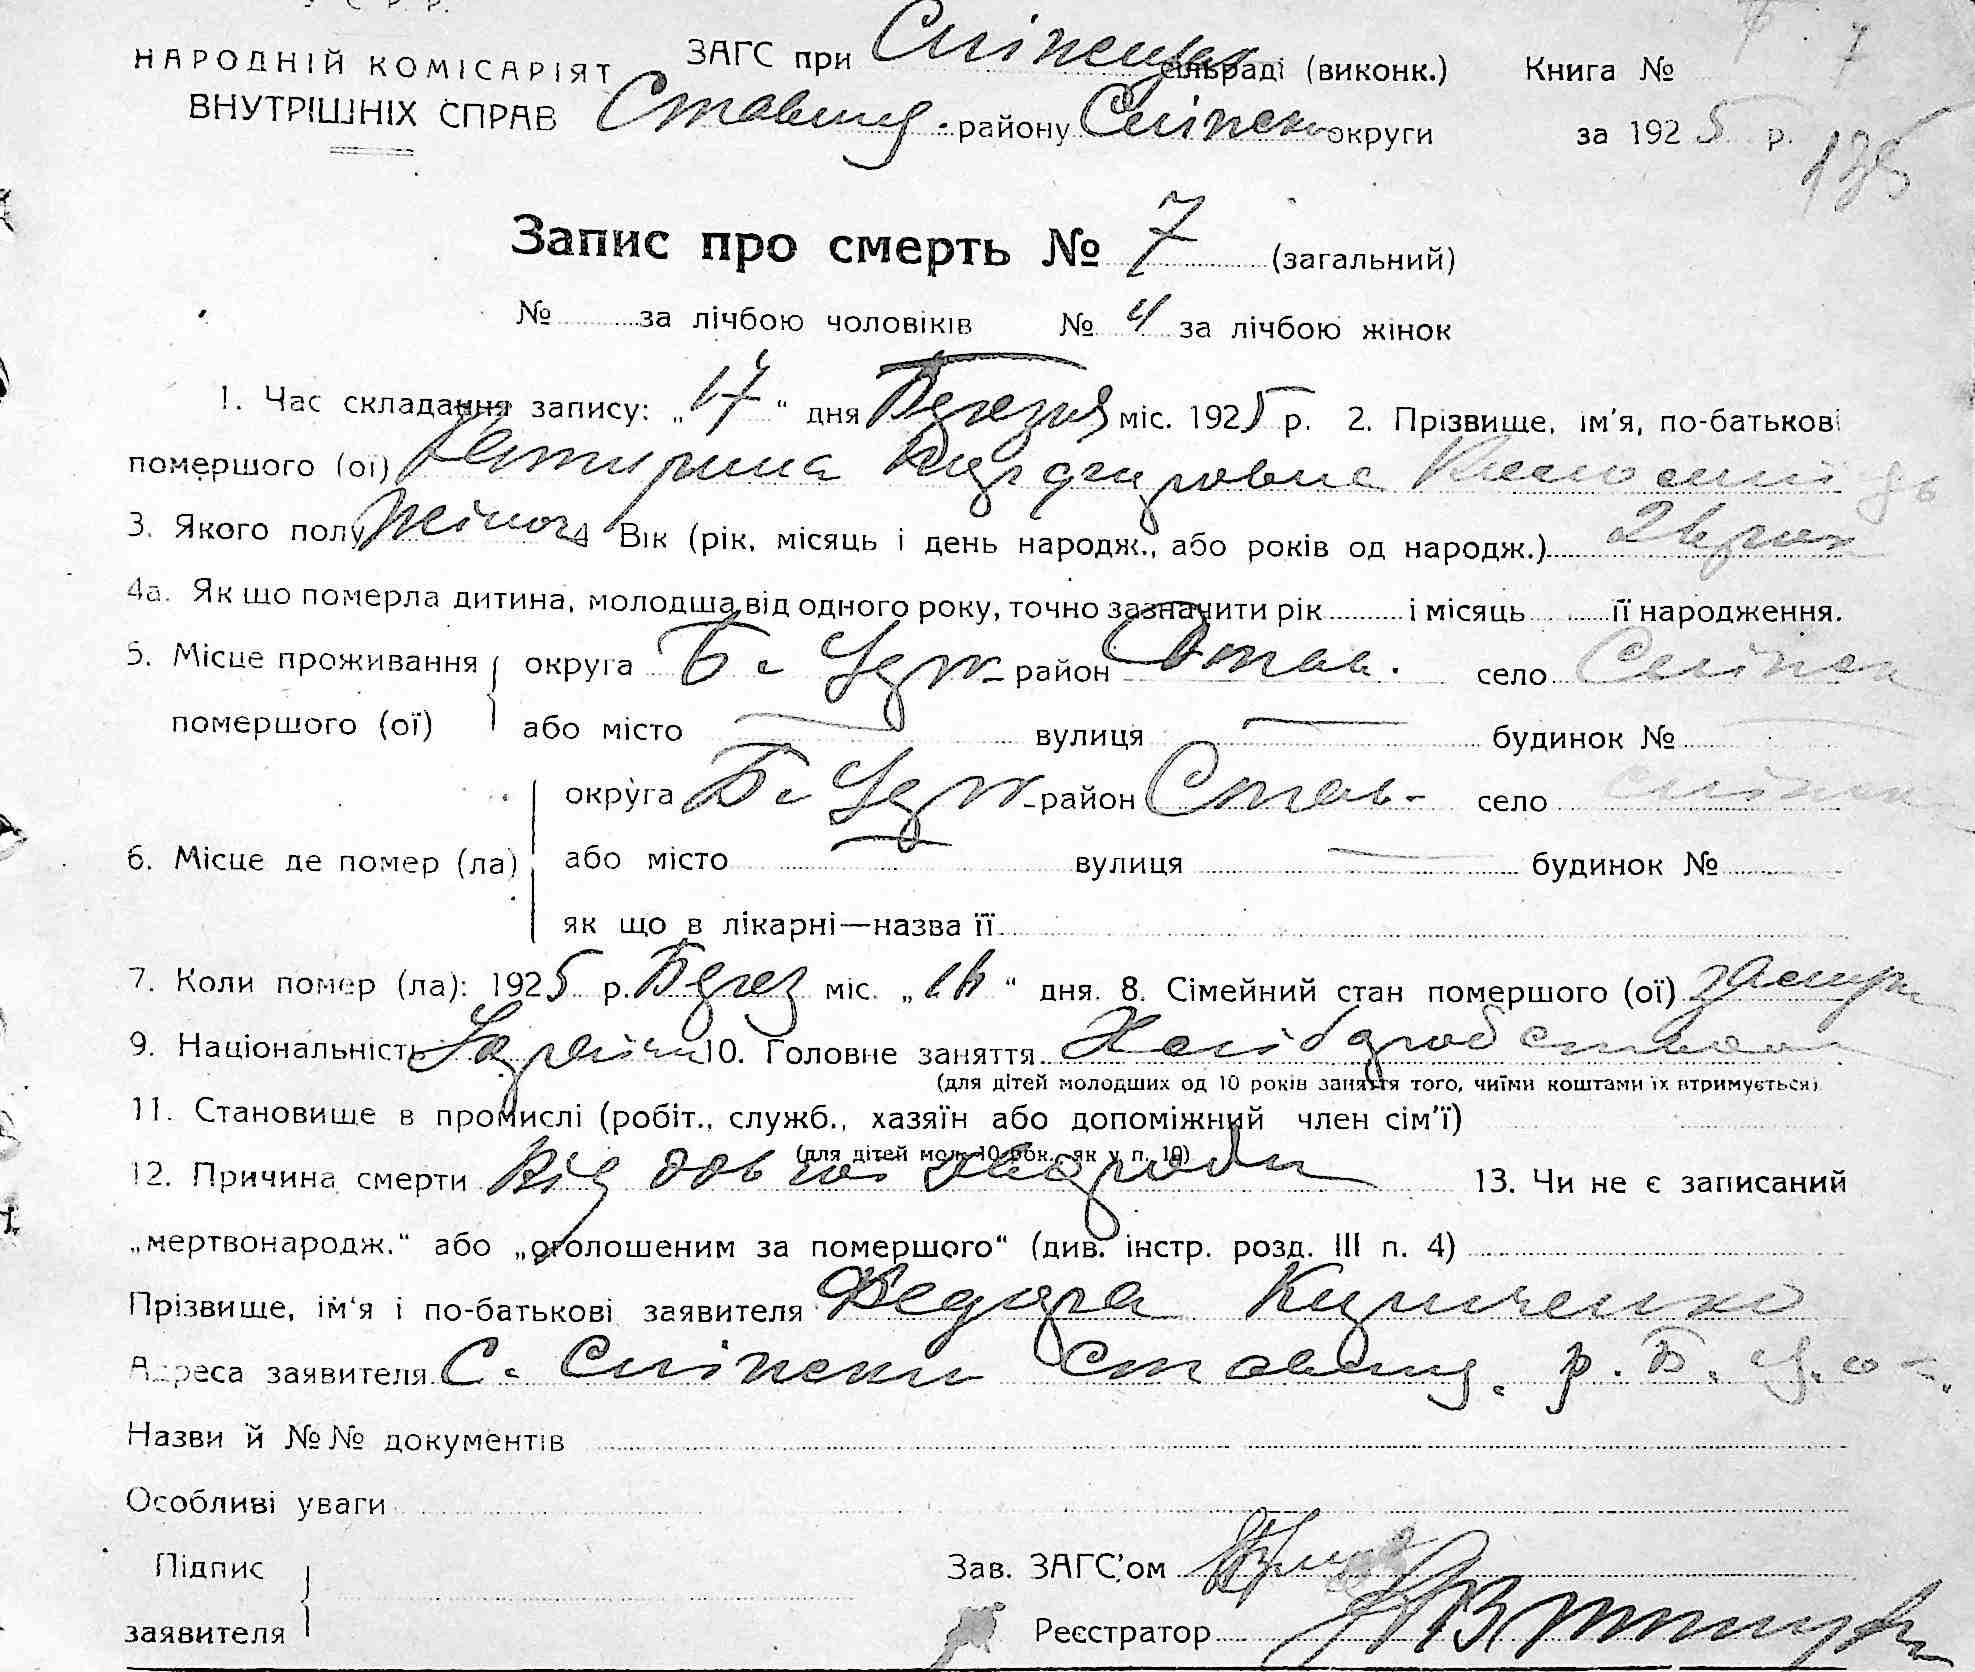 У С Р Р.
НАРОДНІЙ КОМІСАРІЯТ
ВНУТРІШНІХ СПРАВ
ЗАГС при сільраді (виконк.) Книга № 7
Ставищ. району округи за 1925 р.
Запис про смерть № 7 (загальний)
№ за лічбою чоловіків № 4 за лічбою жінок
1. Час складання запису: „17“ дня Березня міс. 1925 р. 2. Прізвище, ім'я, по-батькові
помершого (ої)
3. Якого полу Жіноч. 4 Вік (рік, місяць і день народж., або років од народж.)
4а. Як що померла дитина, молодша від одного року, точно зазначити рік і місяць її народження.
5. Місце проживання помершого (ої) округа Б. Церк. район Став. село
або місто — вулиця — будинок №
6. Місце де помер (ла) округа Б. Церк. район Став. село
або місто — вулиця — будинок №
як що в лікарні—назва її
7. Коли помер (ла): 1925 р. Берез міс. „16“ дня. 8. Сімейний стан помершого (ої)
9. Національність Україн 10. Головне заняття Хліборобство
(для дітей молодших од 10 років заняття того, чиїми коштами їх втримується)
11. Становище в промислі (робіт., служб., хазяїн або допоміжний член сім'ї)
(для дітей мол. 10 рок., як у п. 10)
12. Причина смерти Від довгої хвороби 13. Чи не є записаний
„мертвонародж.“ або „оголошеним за помершого“ (див. інстр. розд. III п. 4)
Прізвище, ім'я і по-батькові заявителя Федора
Адреса заявителя С. Ставищ. р. Б. Ц. о.
Назви й №№ документів
Особливі уваги
Підпис заявителя
Зав. ЗАГС'ом
Реєстратор